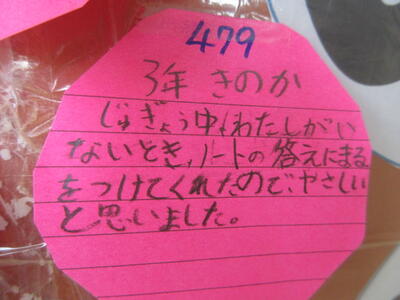 479
3年 きのか
じゅぎょう中、わたしがい
ないとき、ノートの答えにまる
をつけてくれたので、やさしい
と思いました。